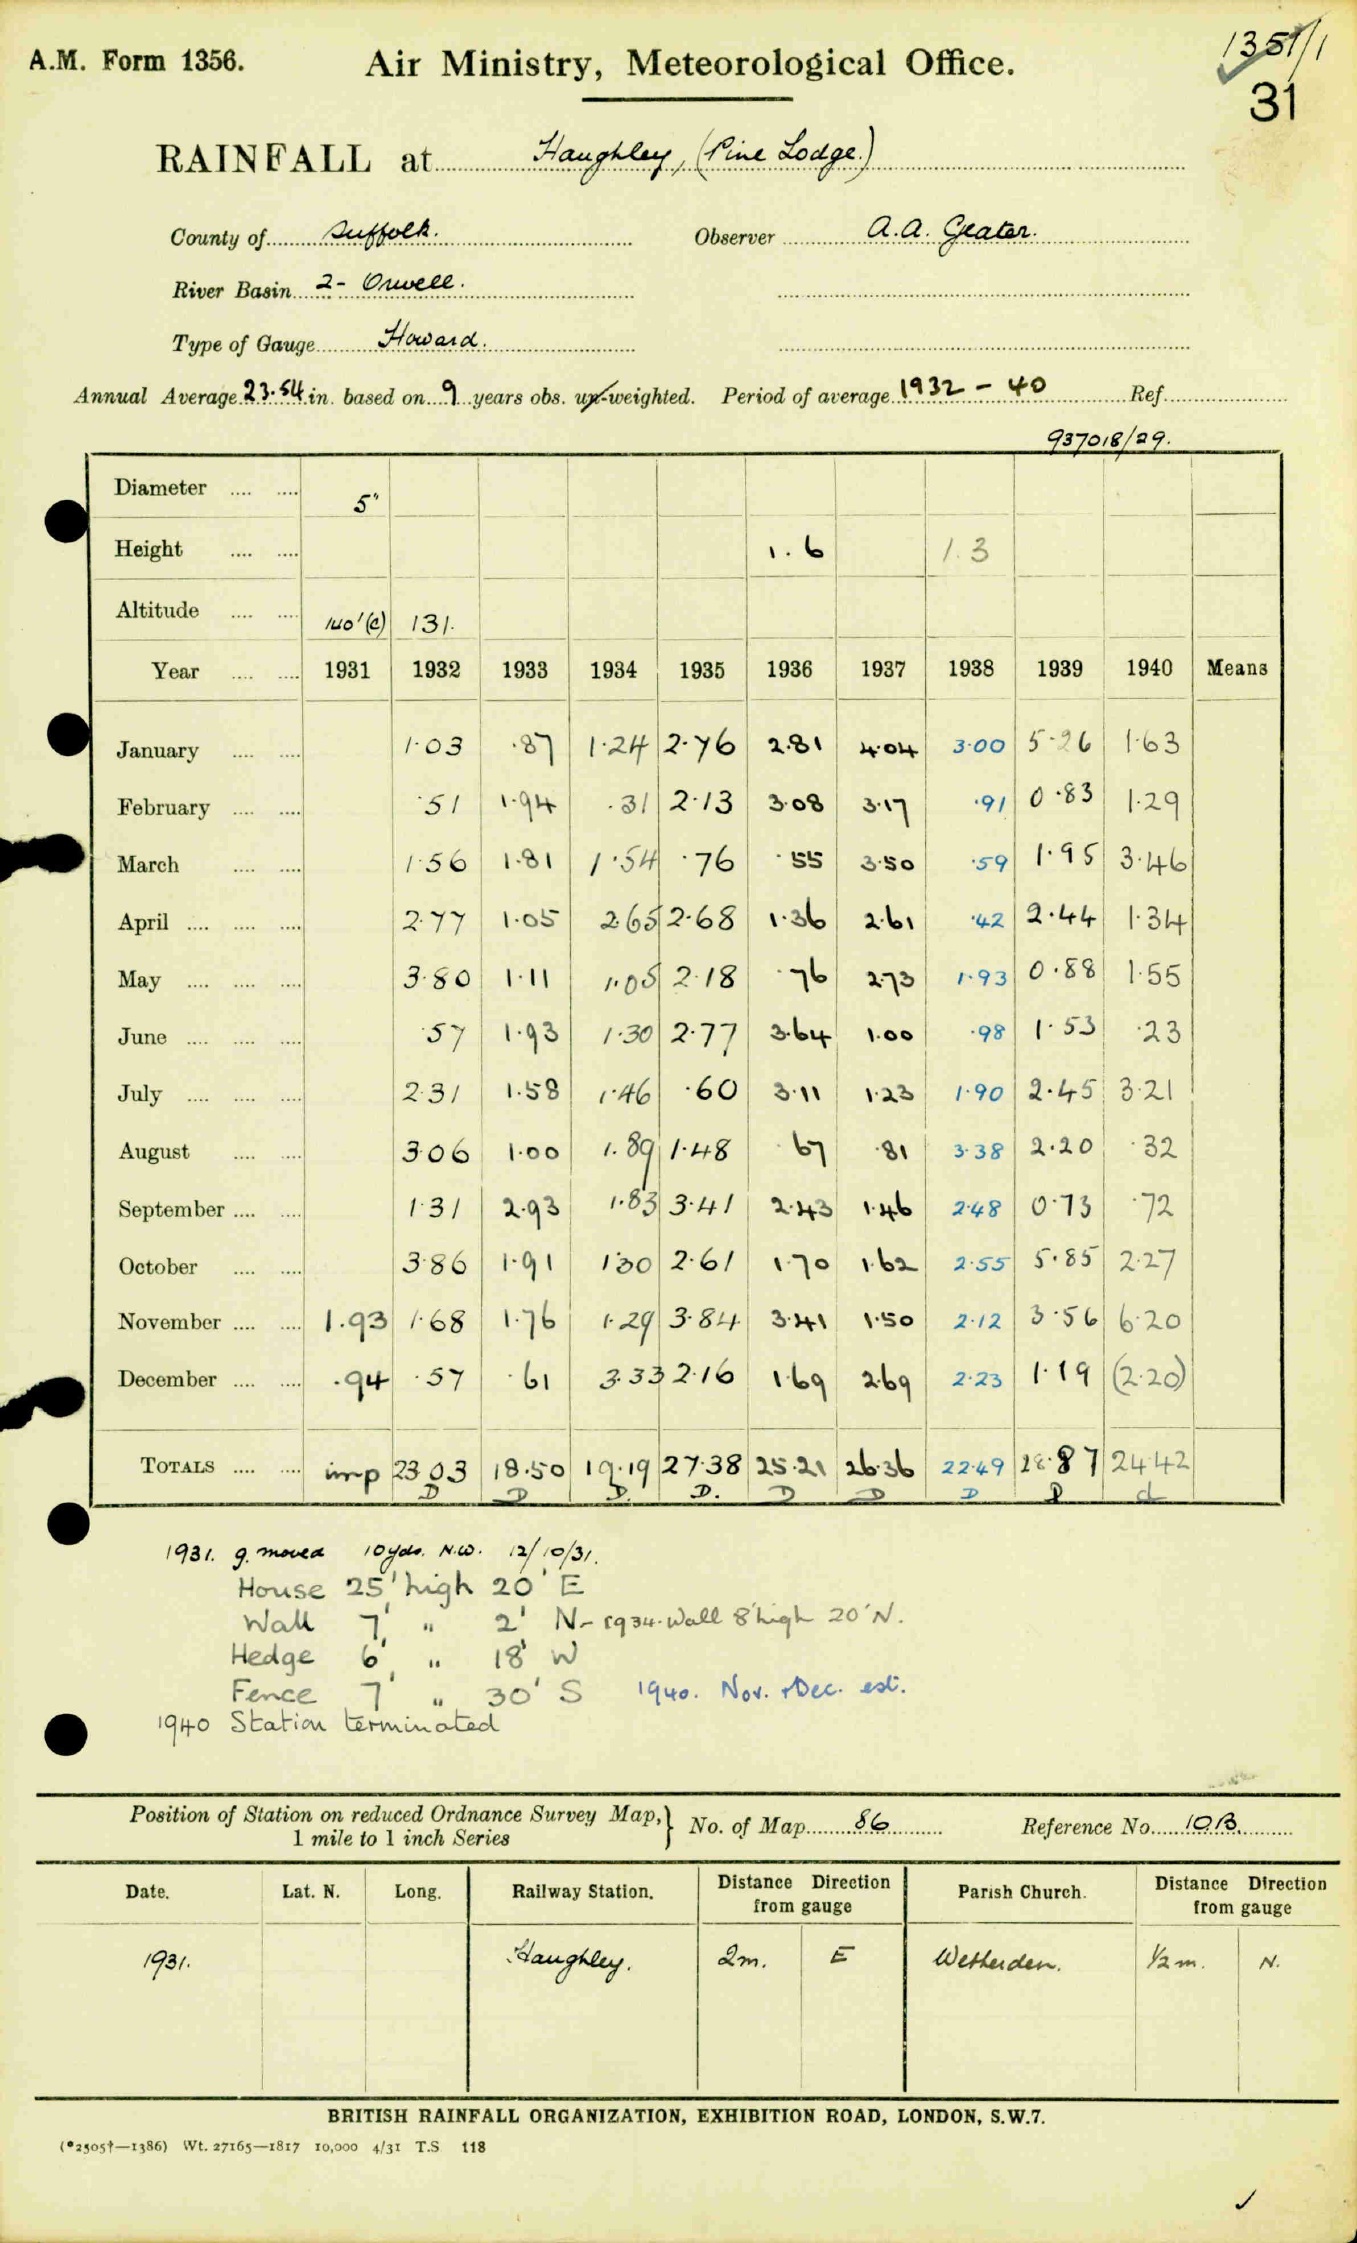 A.M. Form 1356.
Air Ministry, Meteorological Office.
1351/1
31
RAINFALL at Haughley, (Pine Lodge.)
County of Suffolk. Observer A.A. Geater.
River Basin 2- Orwell.
Type of Gauge Howard.
Annual Average 23.54 in. based on 9 years obs. un-weighted. Period of average 1932 - 40 Ref.
937018/29.
Diameter .... .... 5"
Height .... .... 1.6 1.3
Altitude .... .... 140'(c) 131.
Year .... .... 1931 1932 1933 1934 1935 1936 1937 1938 1939 1940 Means
January .... .... 1.03 .87 1.24 2.76 2.81 4.04 3.00 5.26 1.63
February .... .... .51 1.94 .31 2.13 3.08 3.17 .91 0.83 1.29
March .... .... 1.56 1.81 1.54 .76 .55 3.50 .59 1.95 3.46
April .... .... .... 2.77 1.05 2.65 2.68 1.36 2.61 .42 2.44 1.34
May .... .... .... 3.80 1.11 1.05 2.18 .76 2.73 1.93 0.88 1.55
June .... .... .... .57 1.93 1.30 2.77 3.64 1.00 .98 1.53 .23
July .... .... .... 2.31 1.58 1.46 .60 3.11 1.23 1.90 2.45 3.21
August .... .... 3.06 1.00 1.89 1.48 .67 .81 3.38 2.20 .32
September .... .... 1.31 2.93 1.83 3.41 2.43 1.46 2.48 0.73 .72
October .... .... 3.86 1.91 1.30 2.61 1.70 1.62 2.55 5.85 2.27
November .... .... 1.93 1.68 1.76 1.29 3.84 3.41 1.50 2.12 3.56 6.20
December .... .... .94 .57 .61 3.33 2.16 1.69 2.69 2.23 1.19 (2.20)
TOTALS .... .... imp 23.03 18.50 19.19 27.38 25.21 26.36 22.49 28.87 24.42
D D D. D. D D D D d
1931. g. moved 10yds. N.W. 12/10/31.
House 25' high 20' E
Wall 7' " 2' N - 1934. Wall 8' high 20' N.
Hedge 6' " 18' W
Fence 7' " 30' S 1940. Nov. + Dec. est.
1940 Station terminated
Position of Station on reduced Ordnance Survey Map, } No. of Map 86 Reference No. 10B.
1 mile to 1 inch Series
Date. Lat. N. Long. Railway Station. Distance Direction from gauge Parish Church. Distance Direction from gauge
1931. Haughley. 2m. E Wetherden. ½m. N.
BRITISH RAINFALL ORGANIZATION, EXHIBITION ROAD, LONDON, S.W.7.
(*2505†—1386) Wt. 27165—1817 10,000 4/31 T.S 118